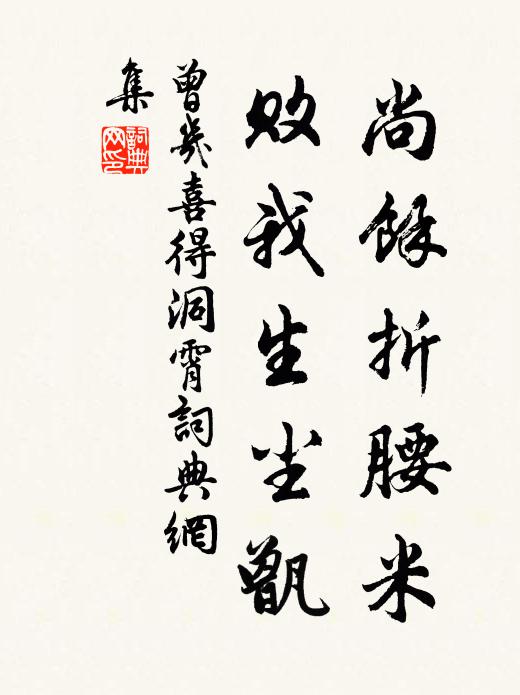 尚餘折腰米
败我生尘甑
曾幾喜得洞霄詞典網
集
詞典网印